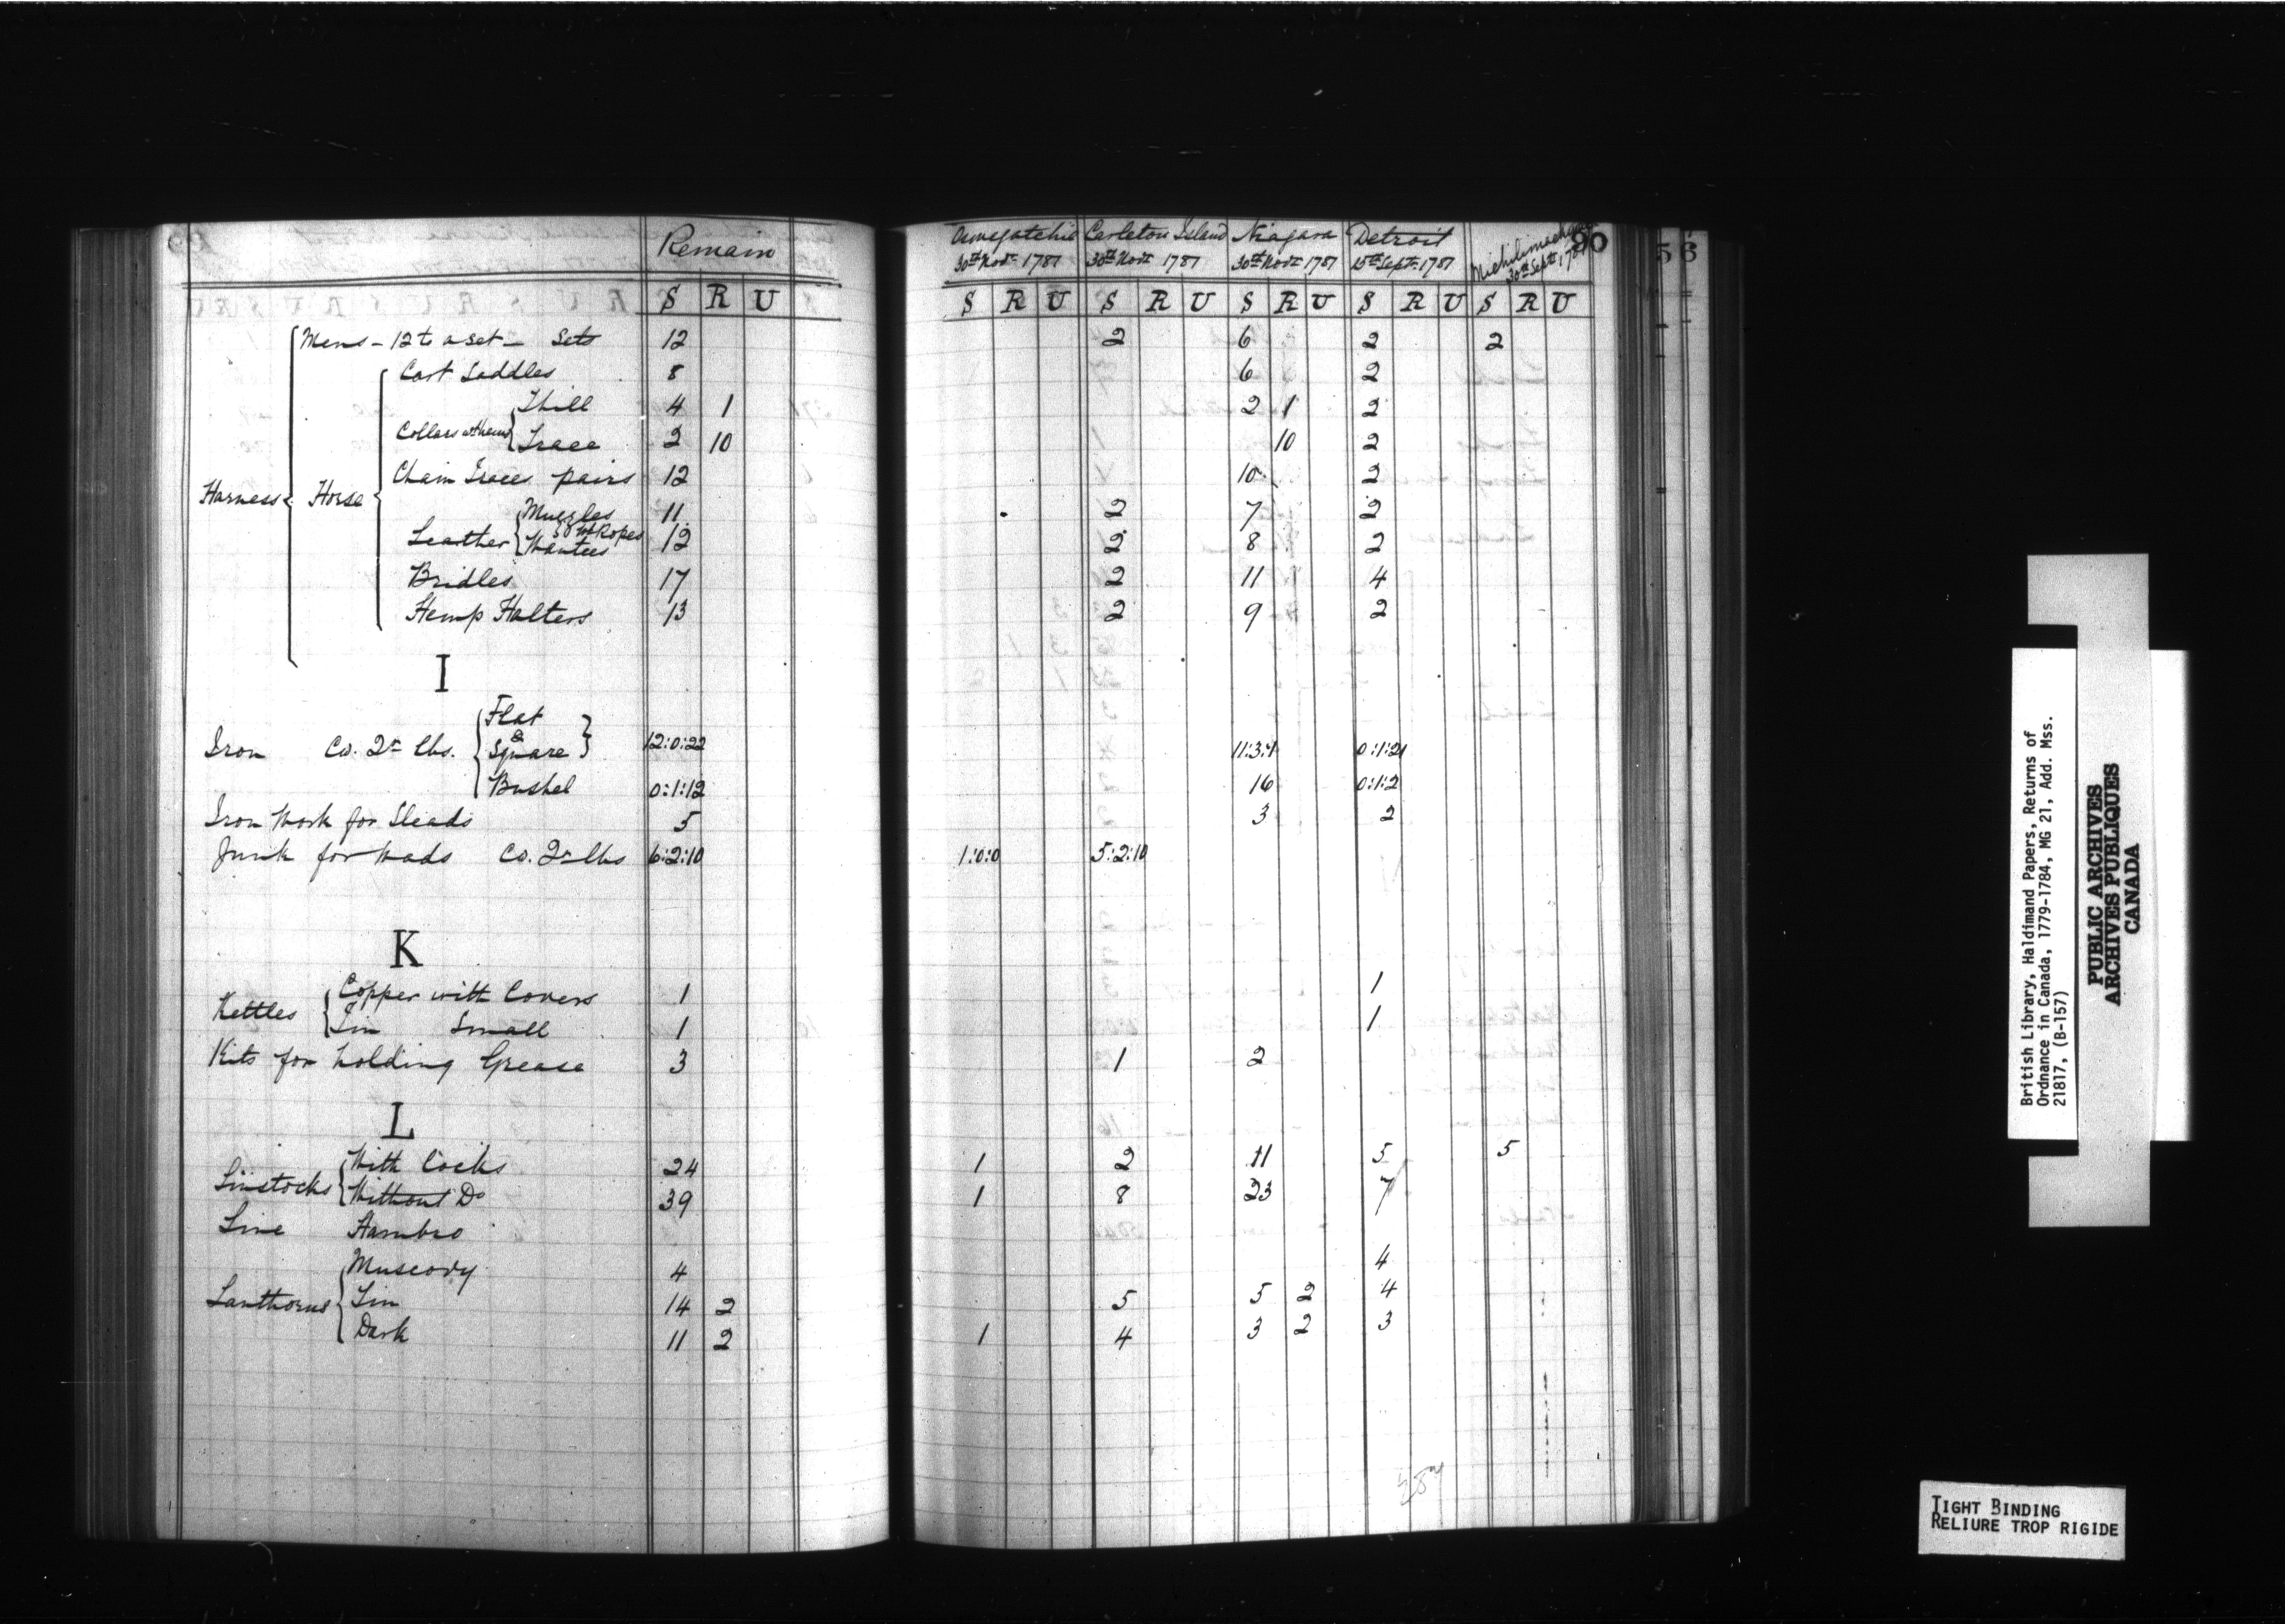 Remain
S R U
Mens - 12 to a set - Sets 12
Cart Saddles 8
Thill 4 1
Collars wt hems Trace 2 10
Chain Traces pairs 12
Harness Horse
Muzzles 11
Leather Wantees wt Ropes 12
Bridles 17
Hemp Halters 13
I
Flat
&
Iron Co. 2r lbs. Square 12:0:22
Bushel 0:1:12
Iron Work for Sleads 5
Junk for Wads Co. 2r lbs 6:2:10
K
Kettles Copper with Covers 1
Tin Small 1
Kits for holding Grease 3
L
Linstocks With Cocks 24
Without Do 39
Line Hambro
Muscovy 4
Lanthorns Tin 14 2
Dark 11 2
Oswegatchie Carleton Island Niagara Detroit Michilimackinac 90
30th Novr 1781 30th Novr 1781 30th Novr 1781 15th Septr 1781 30th Septr 1781
S R U S R U S R U S R U S R U
2 6 2 2
6 2
2 1 2
10 2
10 2
2 7 2
2 8 2
2 11 4
2 9 2
11:3:1 0:1:21
16 0:1:2
3 2
1:0:0 5:2:10
1
1
1 2
1 2 11 5 5
1 8 23 7
4
5 5 2 4
1 4 3 2 3
56
British Library, Haldimand Papers, Returns of
Ordnance in Canada, 1779-1784, MG 21, Add. Mss.
21817, (B-157)
PUBLIC ARCHIVES
ARCHIVES PUBLIQUES
CANADA
TIGHT BINDING
RELIURE TROP RIGIDE